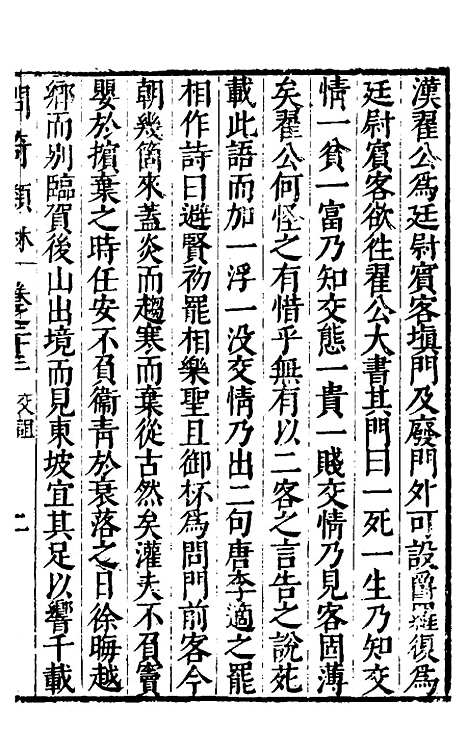 漢翟公為廷尉賓客塡門及廢門外可設爵羅復為
廷尉賓客欲徃翟公大書其門曰一死一生乃知交
情一貧一富乃知交態一貴一賤交情乃見客固薄
矣翟公何怪之有惜乎無有以二客之言告之說苑
載此語而加一浮一没交情乃出二句唐李適之罷
相作詩曰避賢初罷相樂聖且御杯為問門前客今
朝幾箇來蓋炎而趨寒而棄從古然矣灌夫不負竇
嬰於擯棄之時任安不負衞青於衰落之日徐晦越
鄉而别臨賀後山出境而見東坡宜其足以響千載
問竒類林 卷之二十三 交誼 二